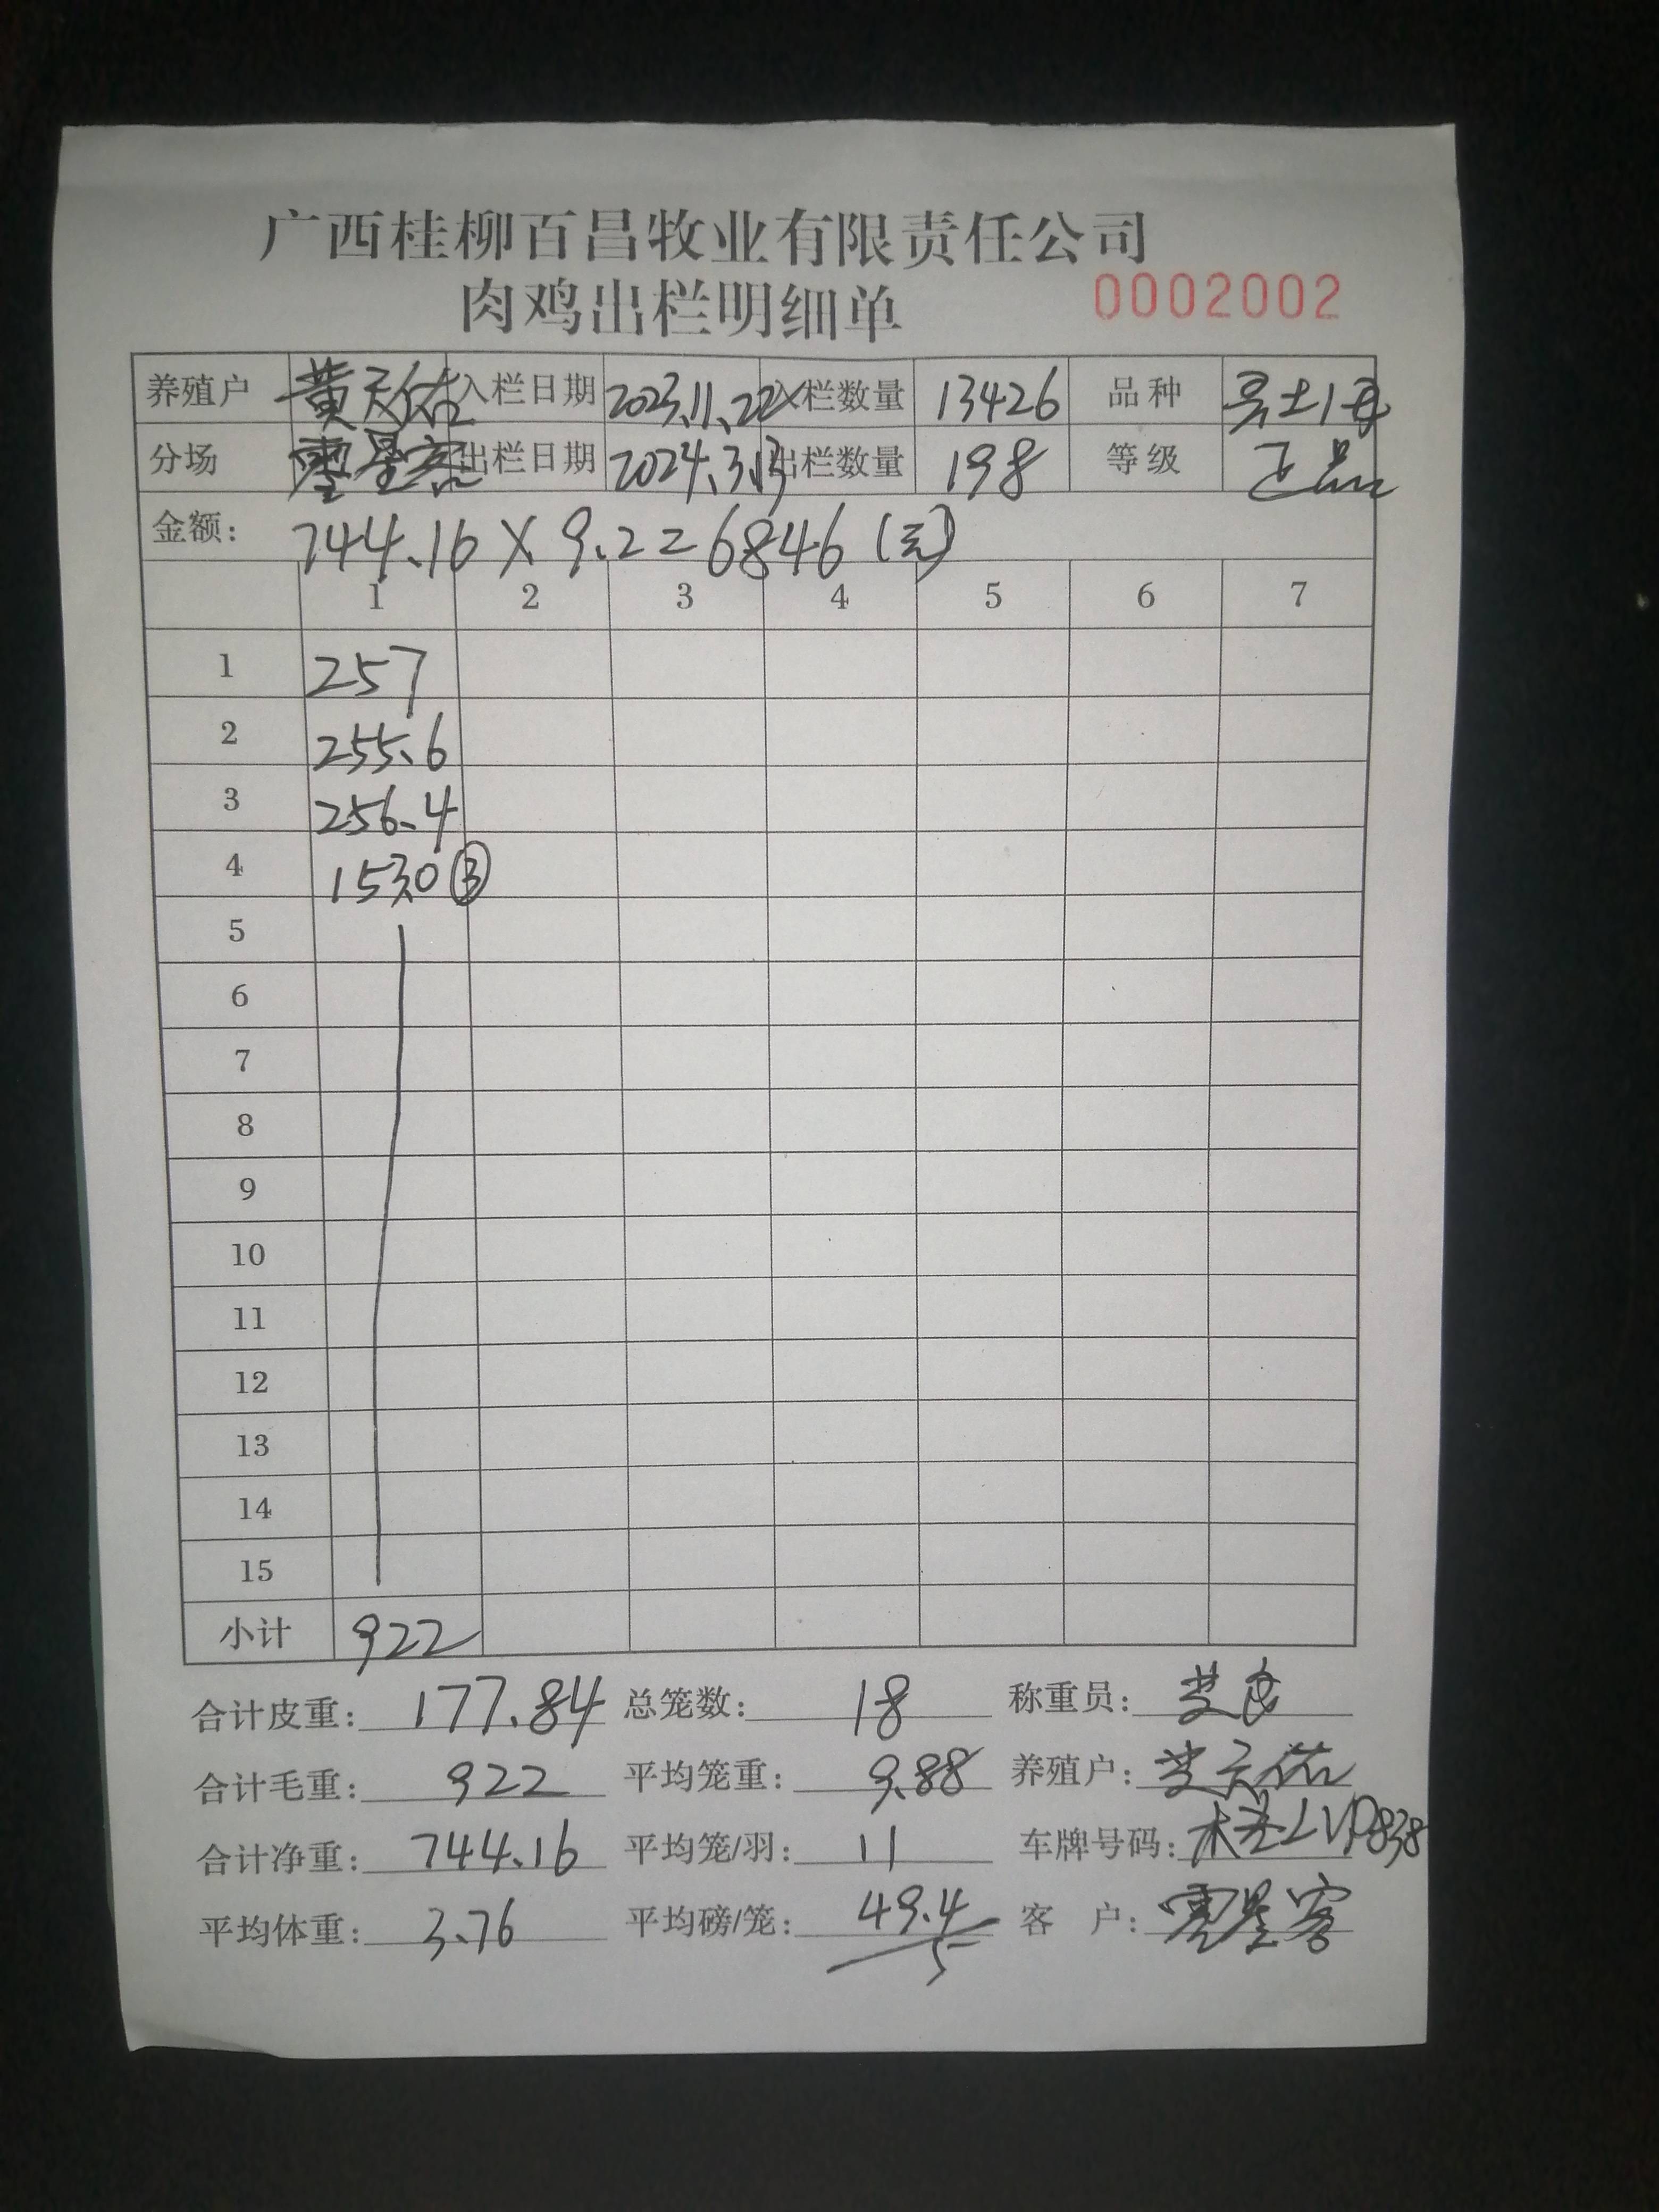 广西桂柳百昌牧业有限责任公司
肉鸡出栏明细单 0002002
养殖户 黄天佑 入栏日期 2023.11.22 入栏数量 13426 品种
分场 零星客 出栏日期 2024.3.13 出栏数量 198 等级 正品
金额: 744.16×9.2=6846(元)
1 2 3 4 5 6 7
1 257
2 255.6
3 256.4
4 153.0 ③
5
6
7
8
9
10
11
12
13
14
15
小计 922
合计皮重: 177.84 总笼数: 18 称重员:
合计毛重: 922 平均笼重: 9.88 养殖户: 黄天佑
合计净重: 744.16 平均笼/羽: 11 车牌号码: 桂LVP838
平均体重: 3.76 平均磅/笼: 49.4 客 户: 零星客
5